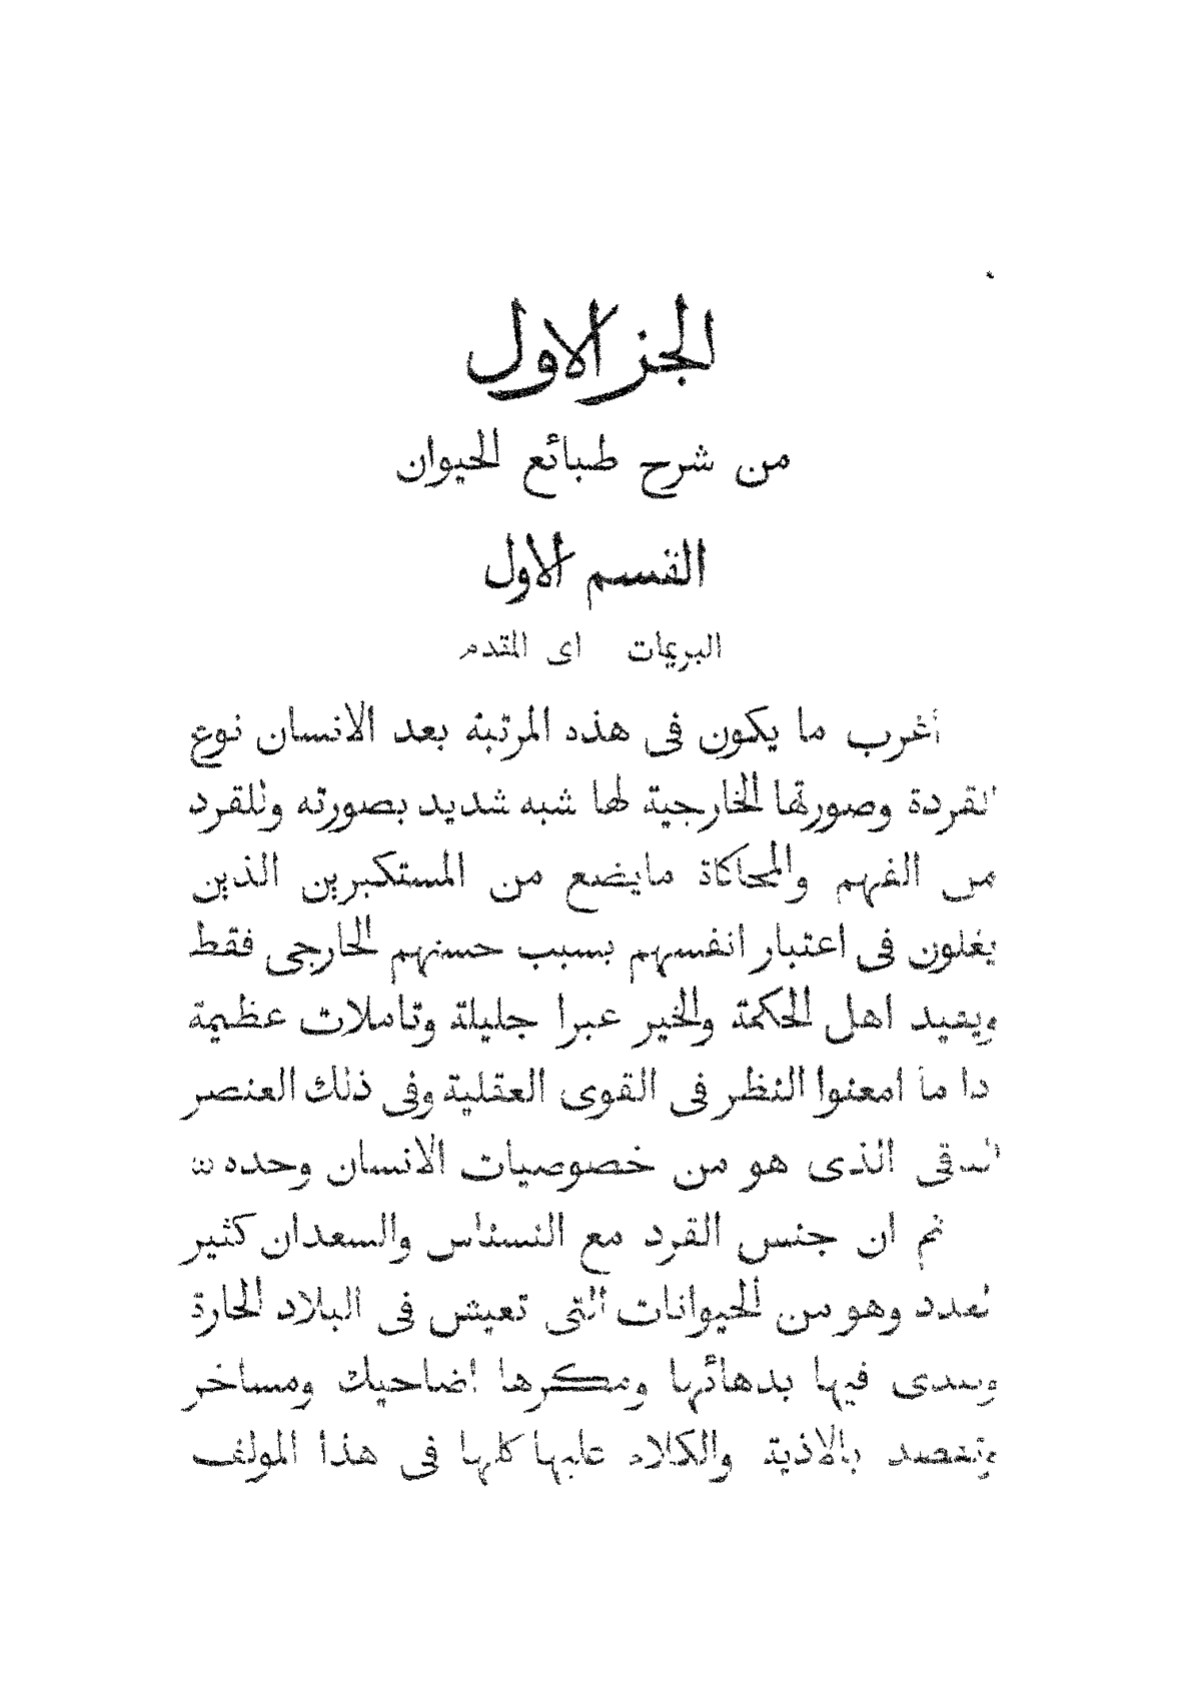 الجز الاول
من شرح طبائع الحيوان
القسم الاول
البريمات اى المقدم
أغرب ما يكون فى هذه المرتبة بعد الانسان نوع
القردة وصورتها الخارجية لها شبه شديد بصورته وللقرد
من الفهم والمحاكاة مايضع من المستكبرين الذين
يغلون فى اعتبار انفسهم بسبب حسنهم الخارجى فقط
ويفيد اهل الحكمة والخير عبرا جليلة وتاملات عظيمة
دا ما امعنوا النظر فى القوى العقلية وفى ذلك العنصر
الذى هو من خصوصيات الانسان وحده
ثم ان جنس القرد مع النسناس والسعدان كثير
لعدد وهو من الحيوانات التى تعيش فى البلاد الحارة
ويبدى فيها بدهائها ومكرها اضاحيك ومساخر
وتقصد بالاذية والكلام عليها كلها فى هذا المولف